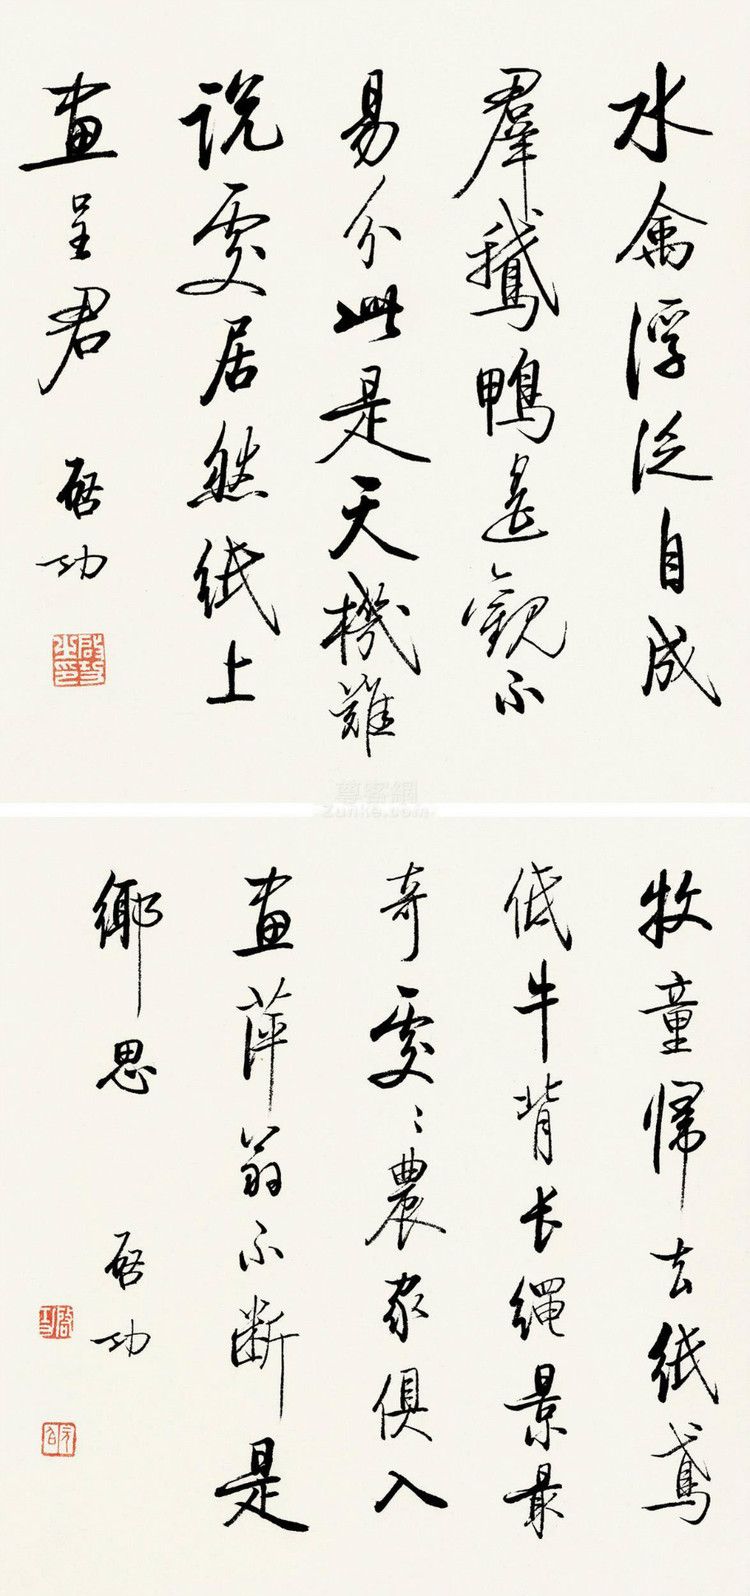 水禽浮泛自成
羣鵝鴨遙觀不
易分此是天機難
說處居然紙上
畫呈君
啟功
啟功之印
尊客網
Zunke.com
牧童歸去紙鳶
低牛背长繩景最
奇處〻農家俱入
畫萍翁不斷是
鄉思
啟功
啟功